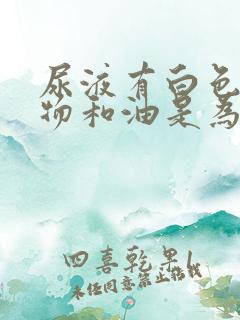 尿液有白色
物和油是為
四喜乾果1
未经同意禁止转载